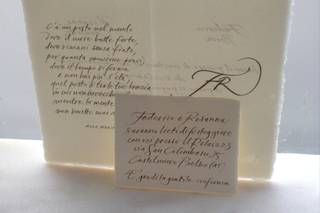 C'è un posto nel mondo
dove il cuore batte forte,
dove rimani senza fiato,
per quanta emozione provi;
dove il tempo si ferma
e non hai più l'età;
quel posto è tra le tue braccia
in cui non invecchia
mentre la mente
non smette mai di
ALDA
FR
Federico e Rosanna
saranno lieti di festeggiare
con voi presso il Relais
via San Colombano,
Castelnuovo
È gradita gentile conferma